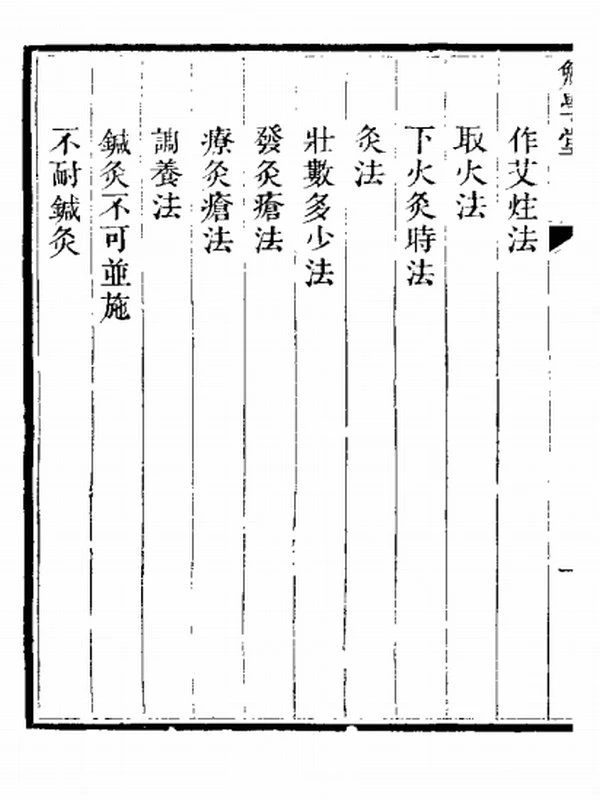 作艾炷法
取火法
下火灸時法
灸法
壯數多少法
發灸瘡法
療灸瘡法
調養法
鍼灸不可並施
不耐鍼灸